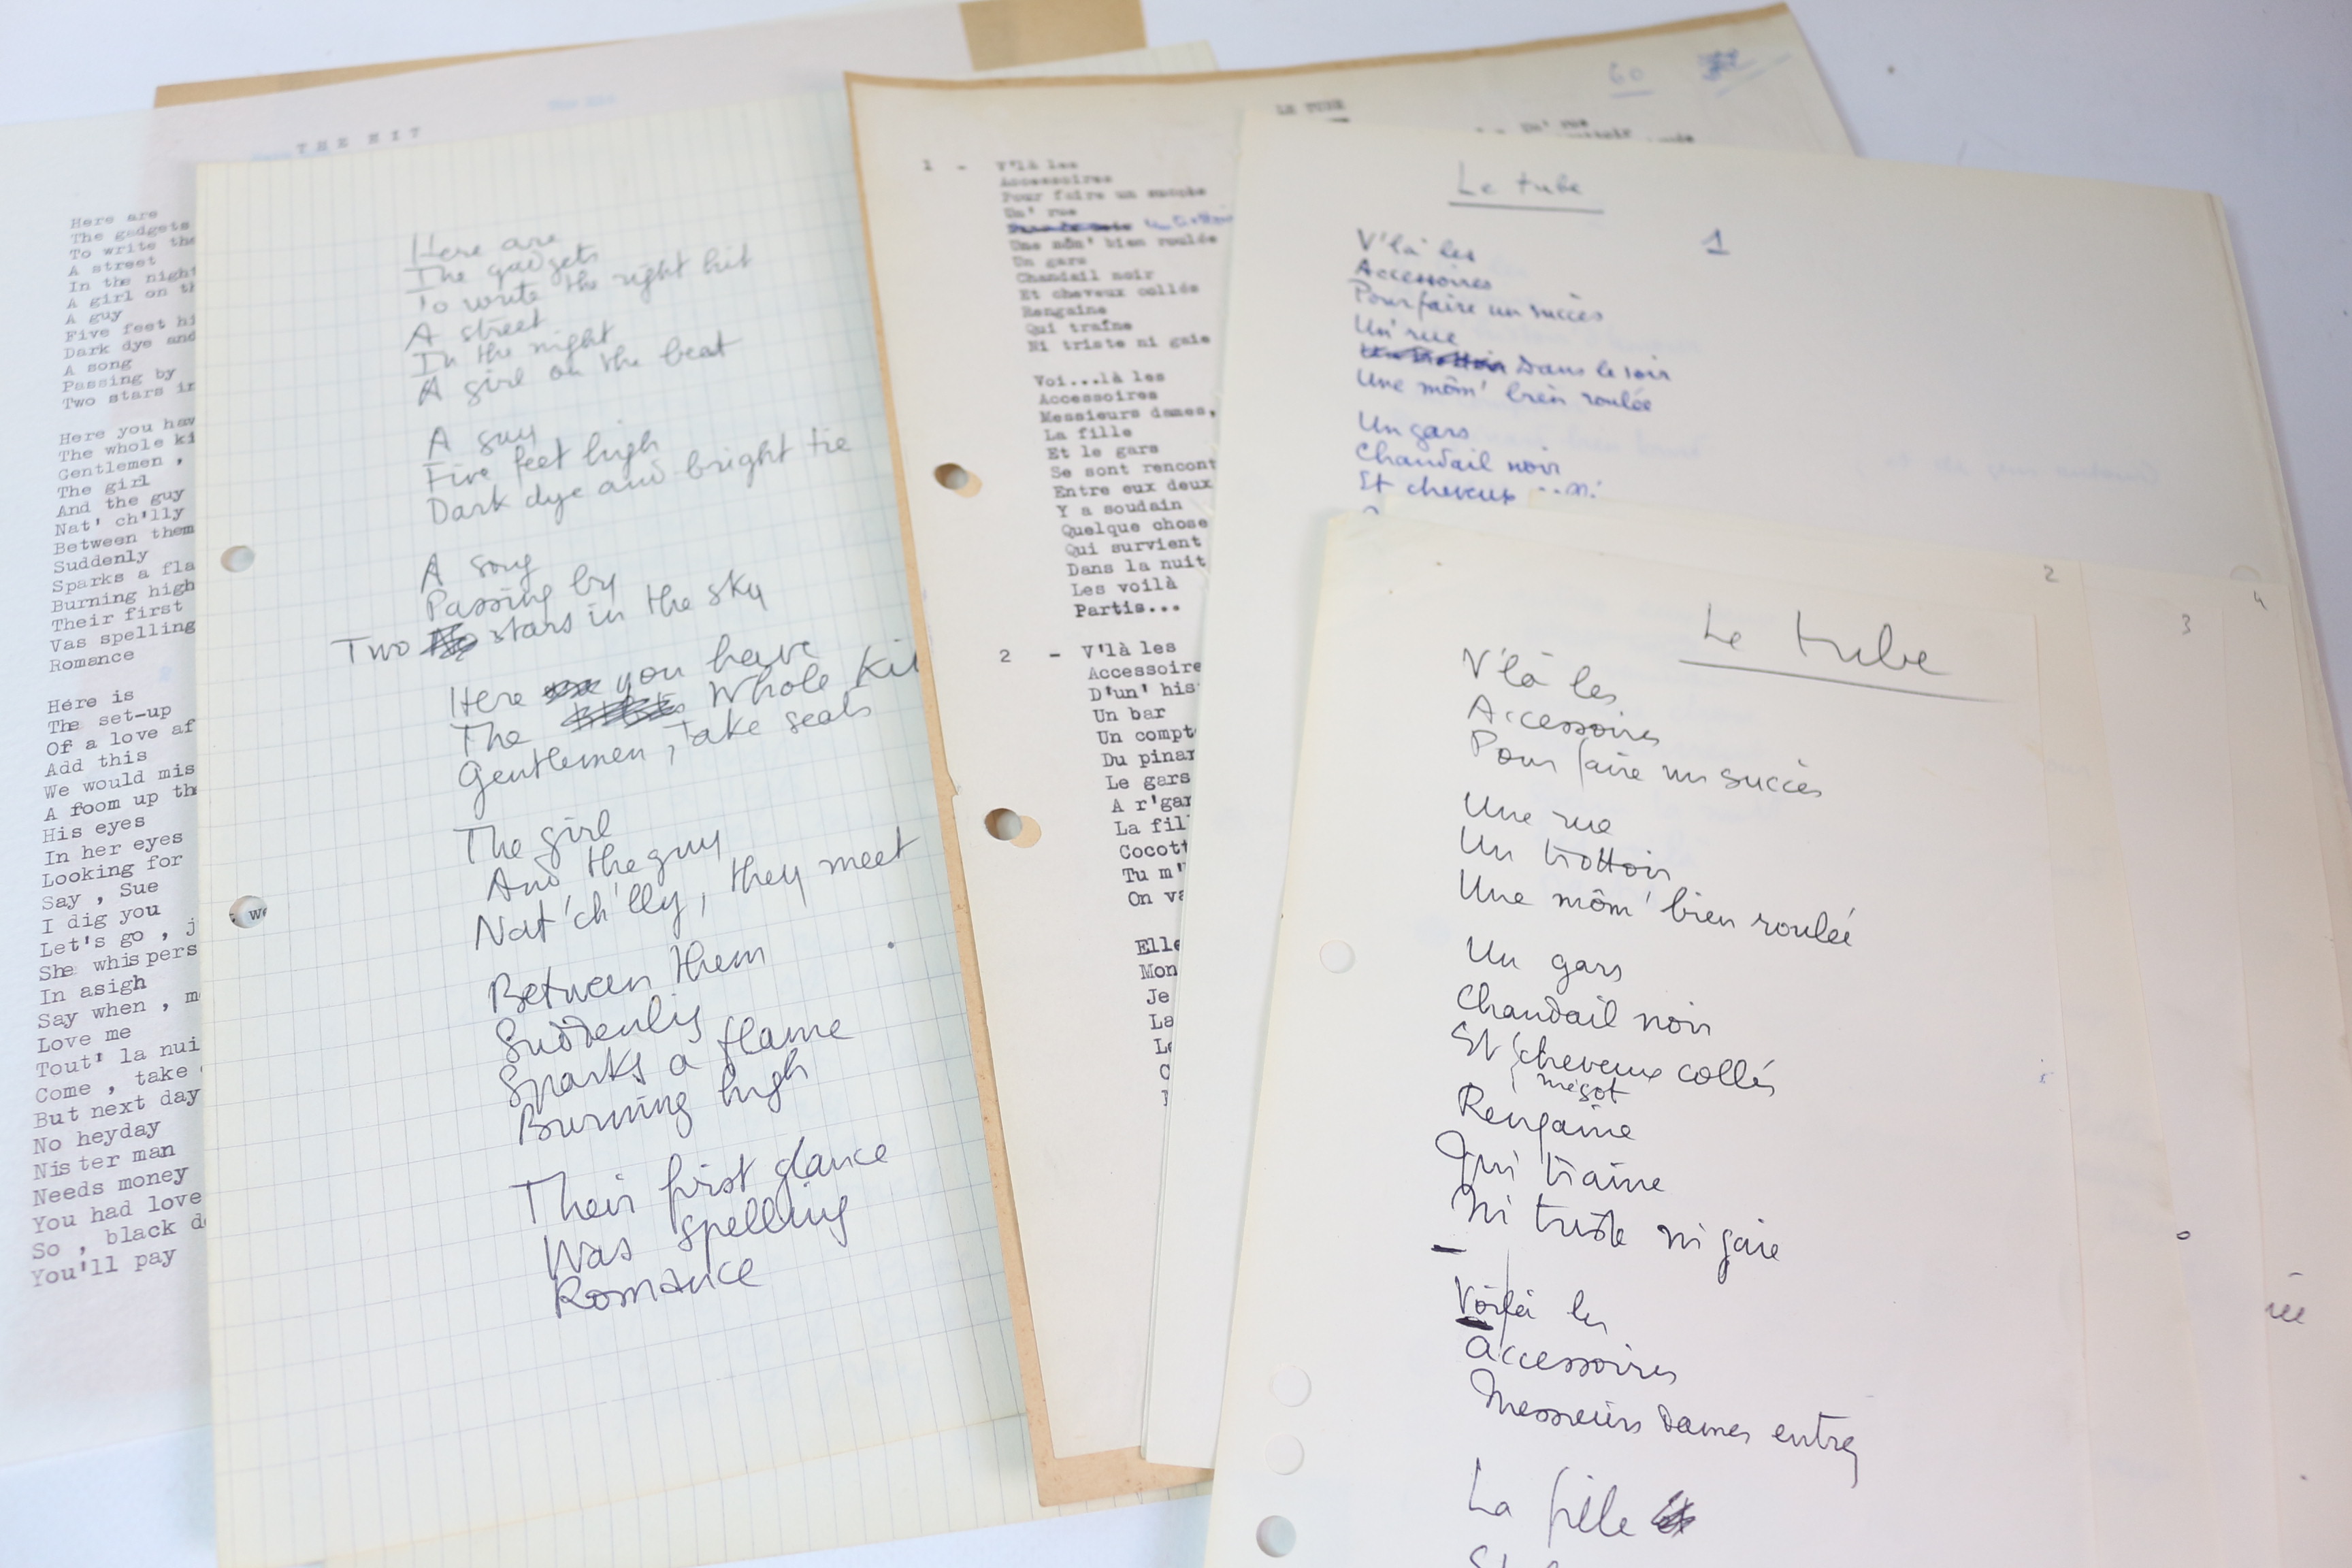 THE HIT
Here are
The gadgets
To write the
A street
In the night
A girl on th
A guy
Five feet hi
Dark dye and
A song
Passing by
Two stars in
Here you hav
The whole ki
Gentlemen ,
The girl
And the guy
Nat' ch'lly
Between them
Suddenly
Sparks a fla
Burning high
Their first
Vas spelling
Romance
Here is
The set-up
Of a love af
Add this
We would mis
A room up th
His eyes
In her eyes
Looking for
Say , Sue
I dig you
Let's go , j
She whispers
In asigh
Say when , m
Love me
Tout' la nui
Come , take
But next day
No heyday
Nister man
Needs money
You had love
So , black d
You'll pay
Here are
The gadgets
To write the right hit
A street
In the night
A girl on the beat
A guy
Five feet high
Dark dye and bright tie
A song
Passing by
Two stars in the sky
Here you have
The Whole Kit
Gentlemen, take seats
The girl
And the guy
Nat'ch'lly, they meet
Between them
Suddenly
Sparks a flame
Burning high
Their first glance
Was spelling
Romance
we
LE TUBE
60
Un' rue
1 - V'là les
Accessoires
Pour faire un succès
Un' rue
Une môm' bien roulée
Un gars
Chandail noir
Et cheveux collés
Rengaine
Qui traîne
Ni triste ni gaie
Voi...là les
Accessoires
Messieurs dames,
La fille
Et le gars
Se sont rencont
Entre eux deux
Y a soudain
Quelque chose
Qui survient
Dans la nuit
Les voilà
Partis...
2 - V'là les
Accessoire
D'un' his
Un bar
Un compt
Du pinar
Le gars
A r'gar
La fil
Cocott
Tu m'
On va
Elle
Mon
Je
La
Le tube
1
V'là les
Accessoires
Pour faire un succès
Un' rue
Dans le soir
Une môm' bien roulée
Un gars
Chandail noir
Et cheveux
2
3
4
Le tube
V'là les
Accessoires
Pour faire un succès
Une rue
Un trottoir
Une môm' bien roulée
Un gars
Chandail noir
Et cheveux collés
mégot
Rengaine
Qui traine
Ni triste ni gaie
Voilà les
Accessoires
Messieurs Dames entrez
La fille